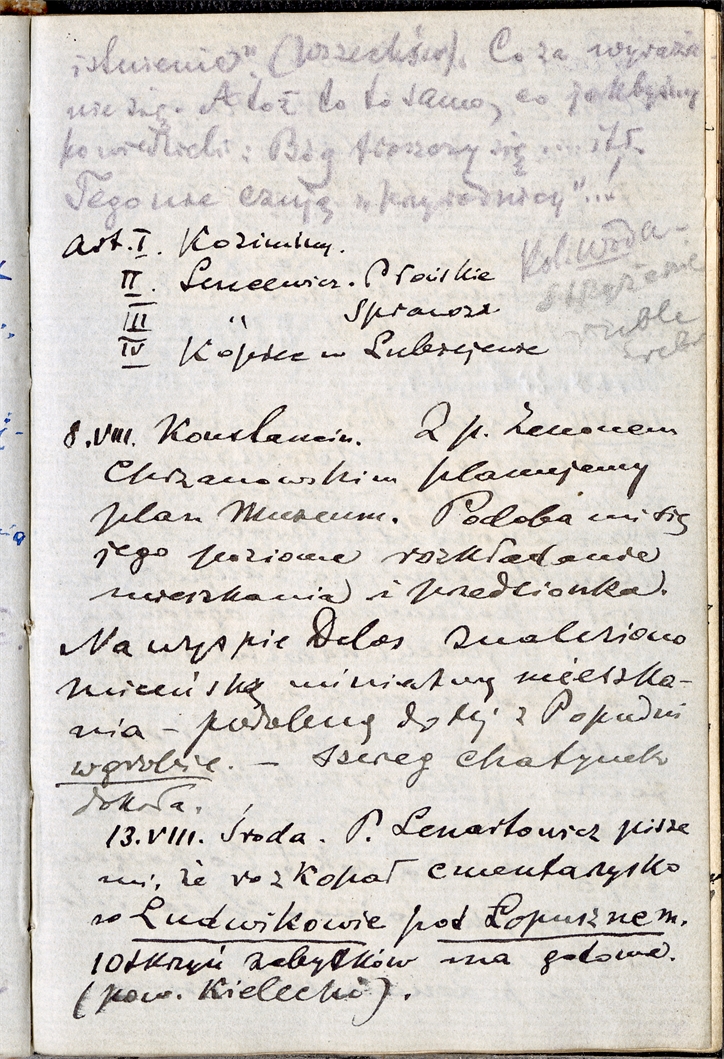 istnienie" (wszechświ). Co za wyraże
nie się. A toż to to samo, co jakbyśmy
powiedzieli: Bóg stworzony się ... itd.
Tego nie czują „przyrodnicy"...!
Art. I. Koziminy.
II. Lencewicz. Płońskie
III " Sprawozd
IV Kopiec w Lubiejewie
Koli Woda -
grube
srebr
8.VIII. Konstancin. Z p. Zenonem
Chrzanowskim planujemy
plan Muzeum. Podoba mi się
jego poziome rozkładanie
mieszkania i przedsionka.
Na wyspie Delos znaleziono
miceńską miniaturę mieszka-
nia - podobną do tej z Popudni
w grobie. - szereg chatynek
dokoła.
13.VIII. Środa. P. Lenartowicz pisze
mi, że rozkopał cmentarzysko
w Ludwikowie pod Łopusznem.
10 skrzyń zabytków ma gotowe.
(pow. Kielecki).